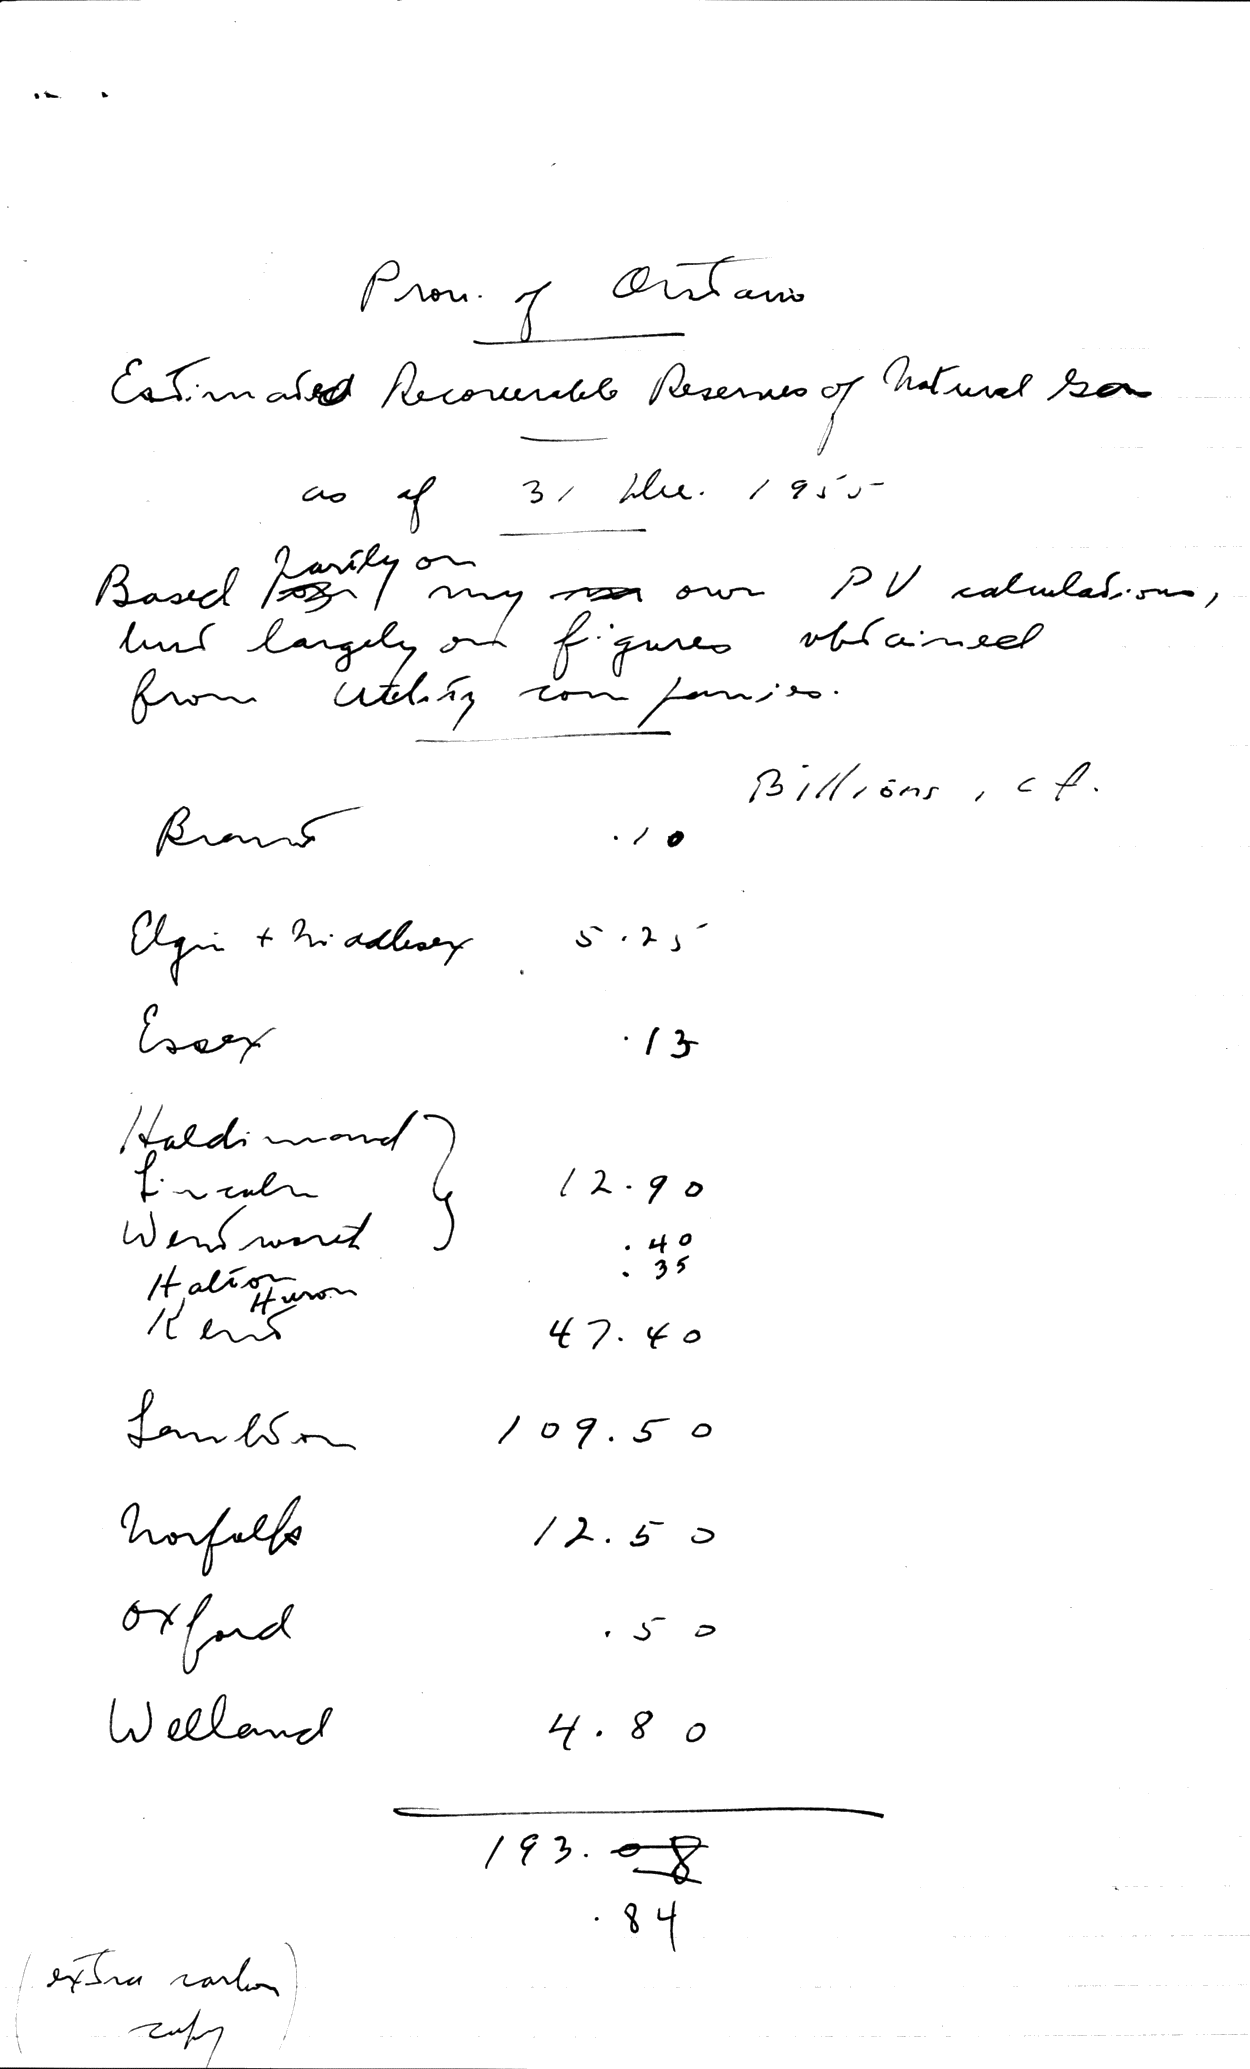 Prov. of Ontario
Estimated Recoverable Reserves of Natural Gas
as of 31 Dec. 1955
partly on
Based my own PV calculations,
but largely on figures obtained
from utility companies.
Billions, c f.
Brant .10
Elgin + Middlesex 5.25
Essex .13
Haldimand
Lincoln } 12.90
Wentworth
.40
Halton .35
Huron
Kent 47.40
Lambton 109.50
Norfolk 12.50
Oxford .50
Welland 4.80
193.08
.84
(extra carbon
copy)